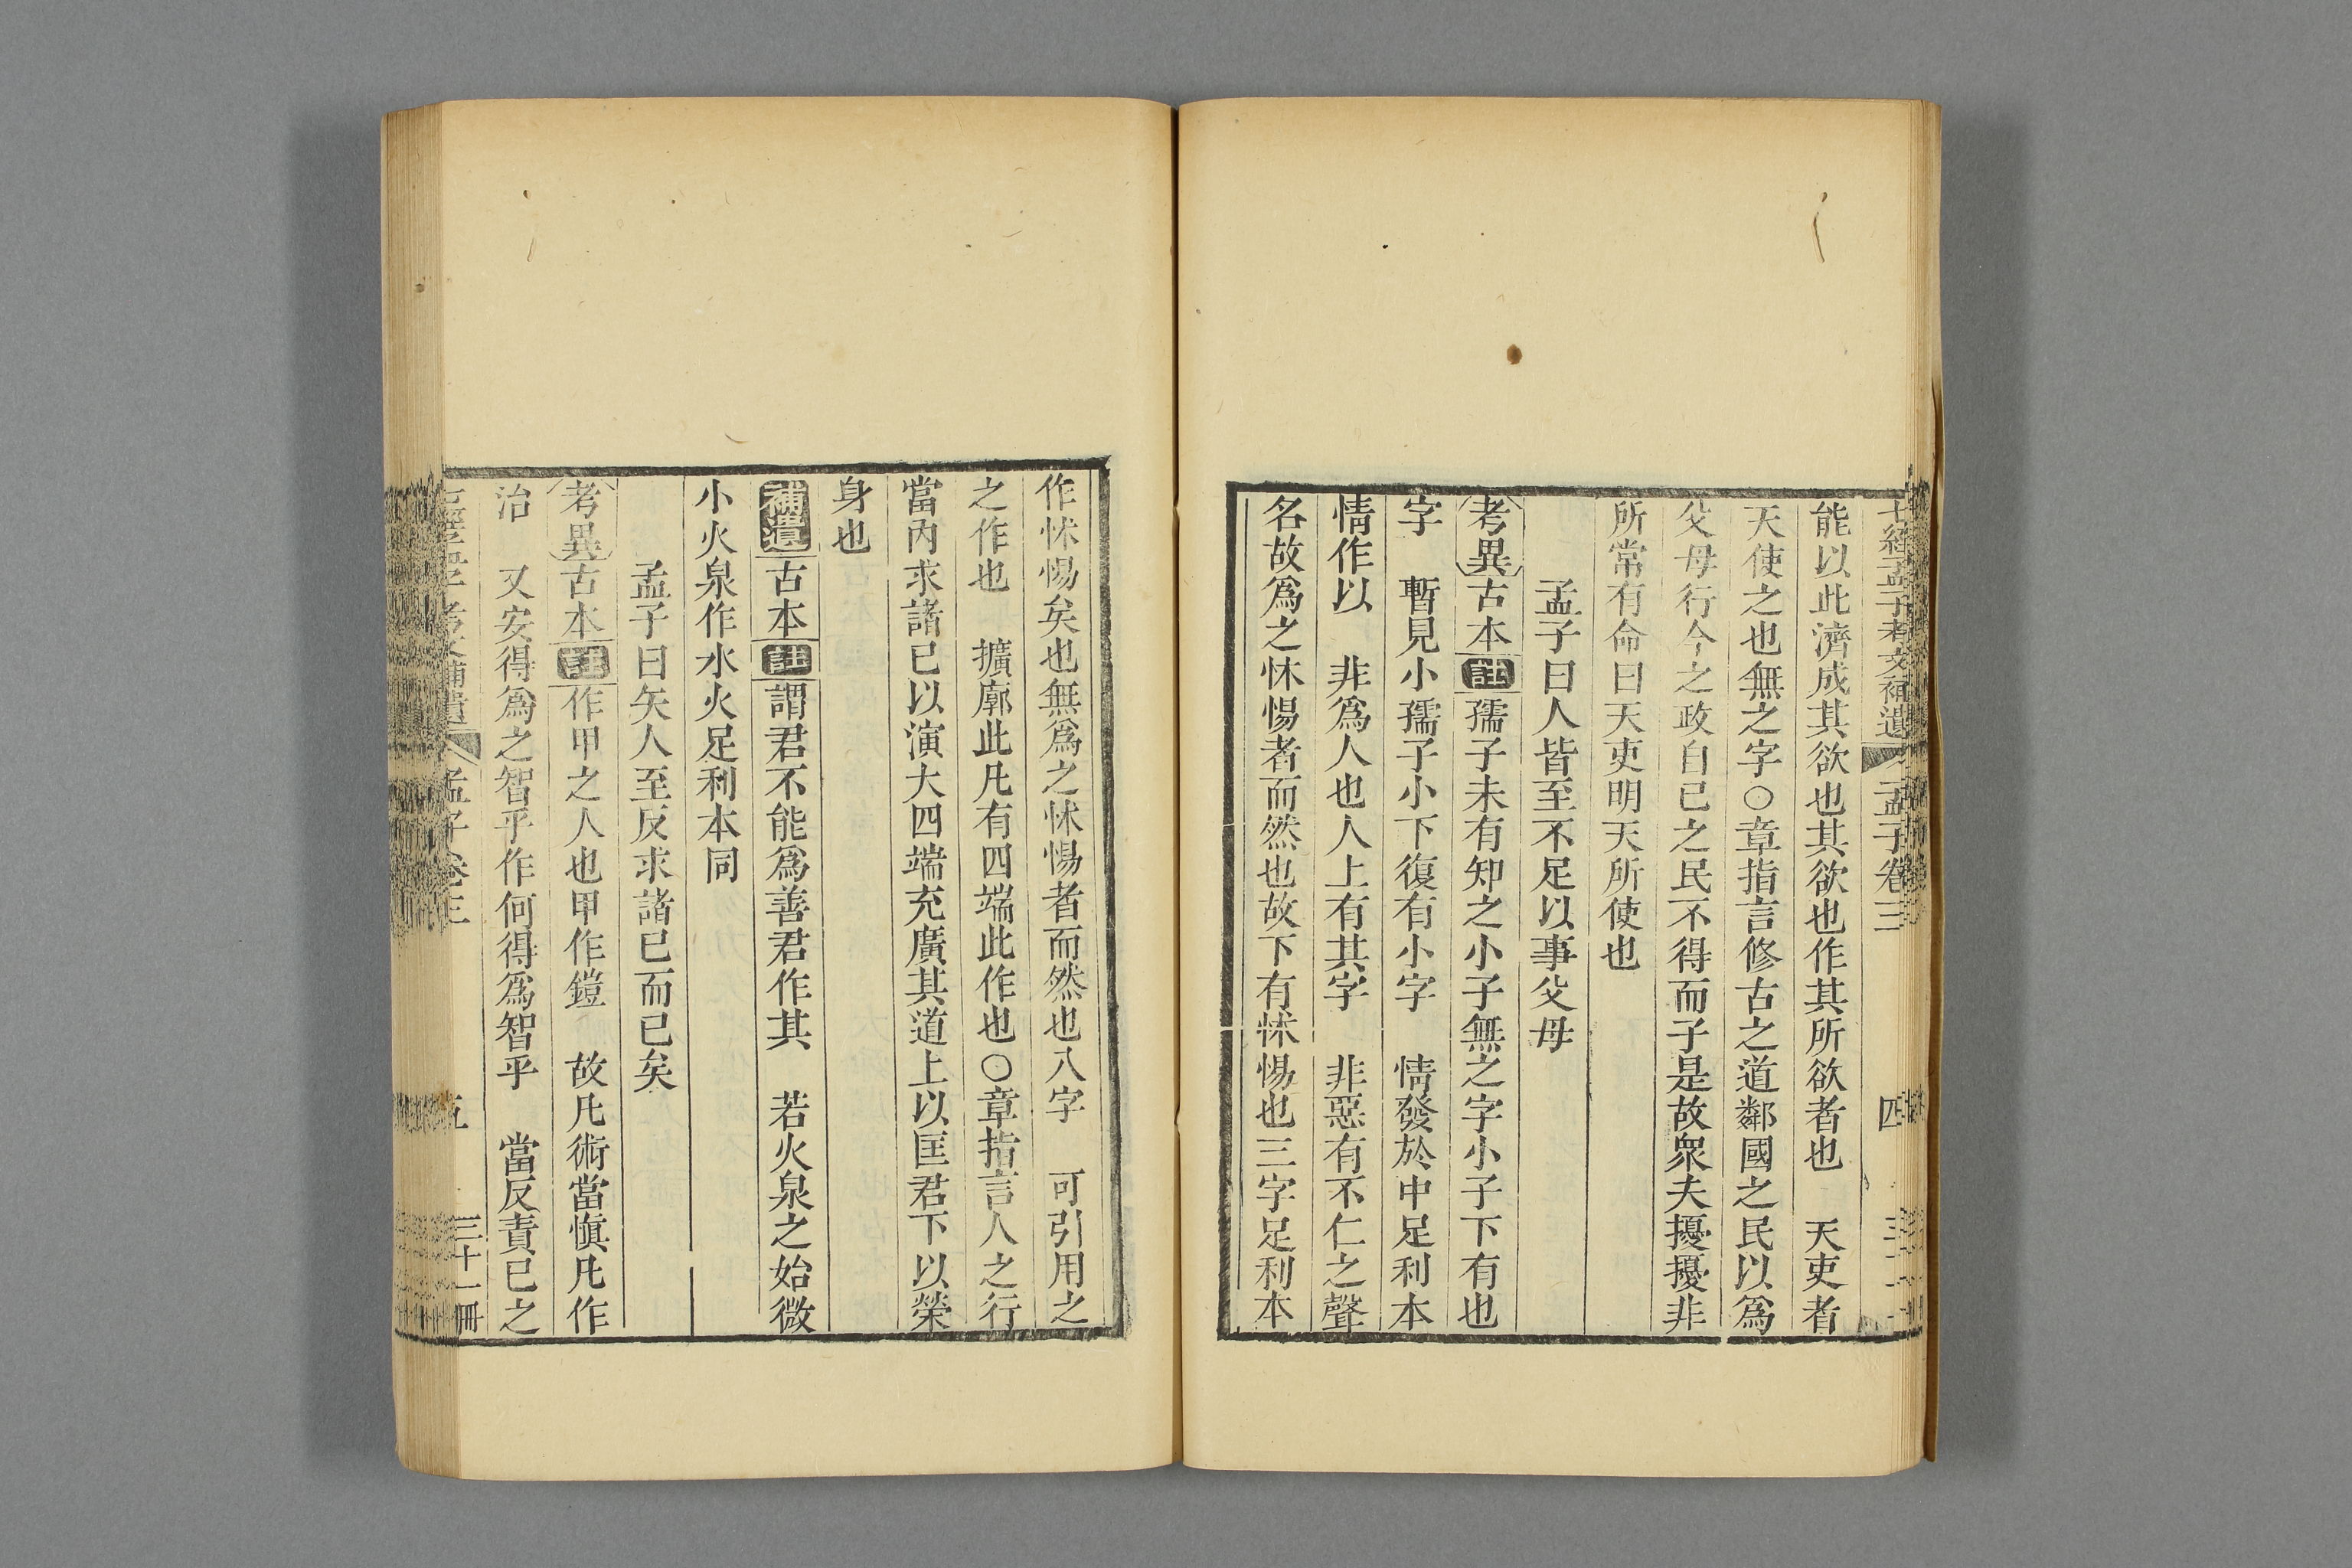 經孟子考文補遺 孟子卷三 四
能以此濟成其欲也其欲也作其所欲者也 天吏者
天使之也無之字○章指言修古之道鄰國之民以爲
父母行今之政自己之民不得而子是故衆夫擾擾非
所常有命曰天吏明天所使也
孟子曰人皆至不足以事父母
考異古本註孺子未有知之小子無之字小子下有也
字 暫見小孺子小下復有小字 情發於中足利本
情作以 非爲人也人上有其字 非惡有不仁之聲
名故爲之怵惕者而然也故下有怵惕也三字足利本
作怵惕矣也無爲之怵惕者而然也八字 可引用之
之作也 擴廓此凡有四端此作也○章指言人之行
當內求諸己以演大四端充廣其道上以匡君下以榮
身也
補遺古本註謂君不能爲善君作其 若火泉之始微
小火泉作水火足利本同
孟子曰矢人至反求諸己而已矣
考異古本註作甲之人也甲作鎧 故凡術當愼凡作
治 又安得爲之智乎作何得爲智乎 當反責己之
考文補遺 孟子卷三 五 三十一冊